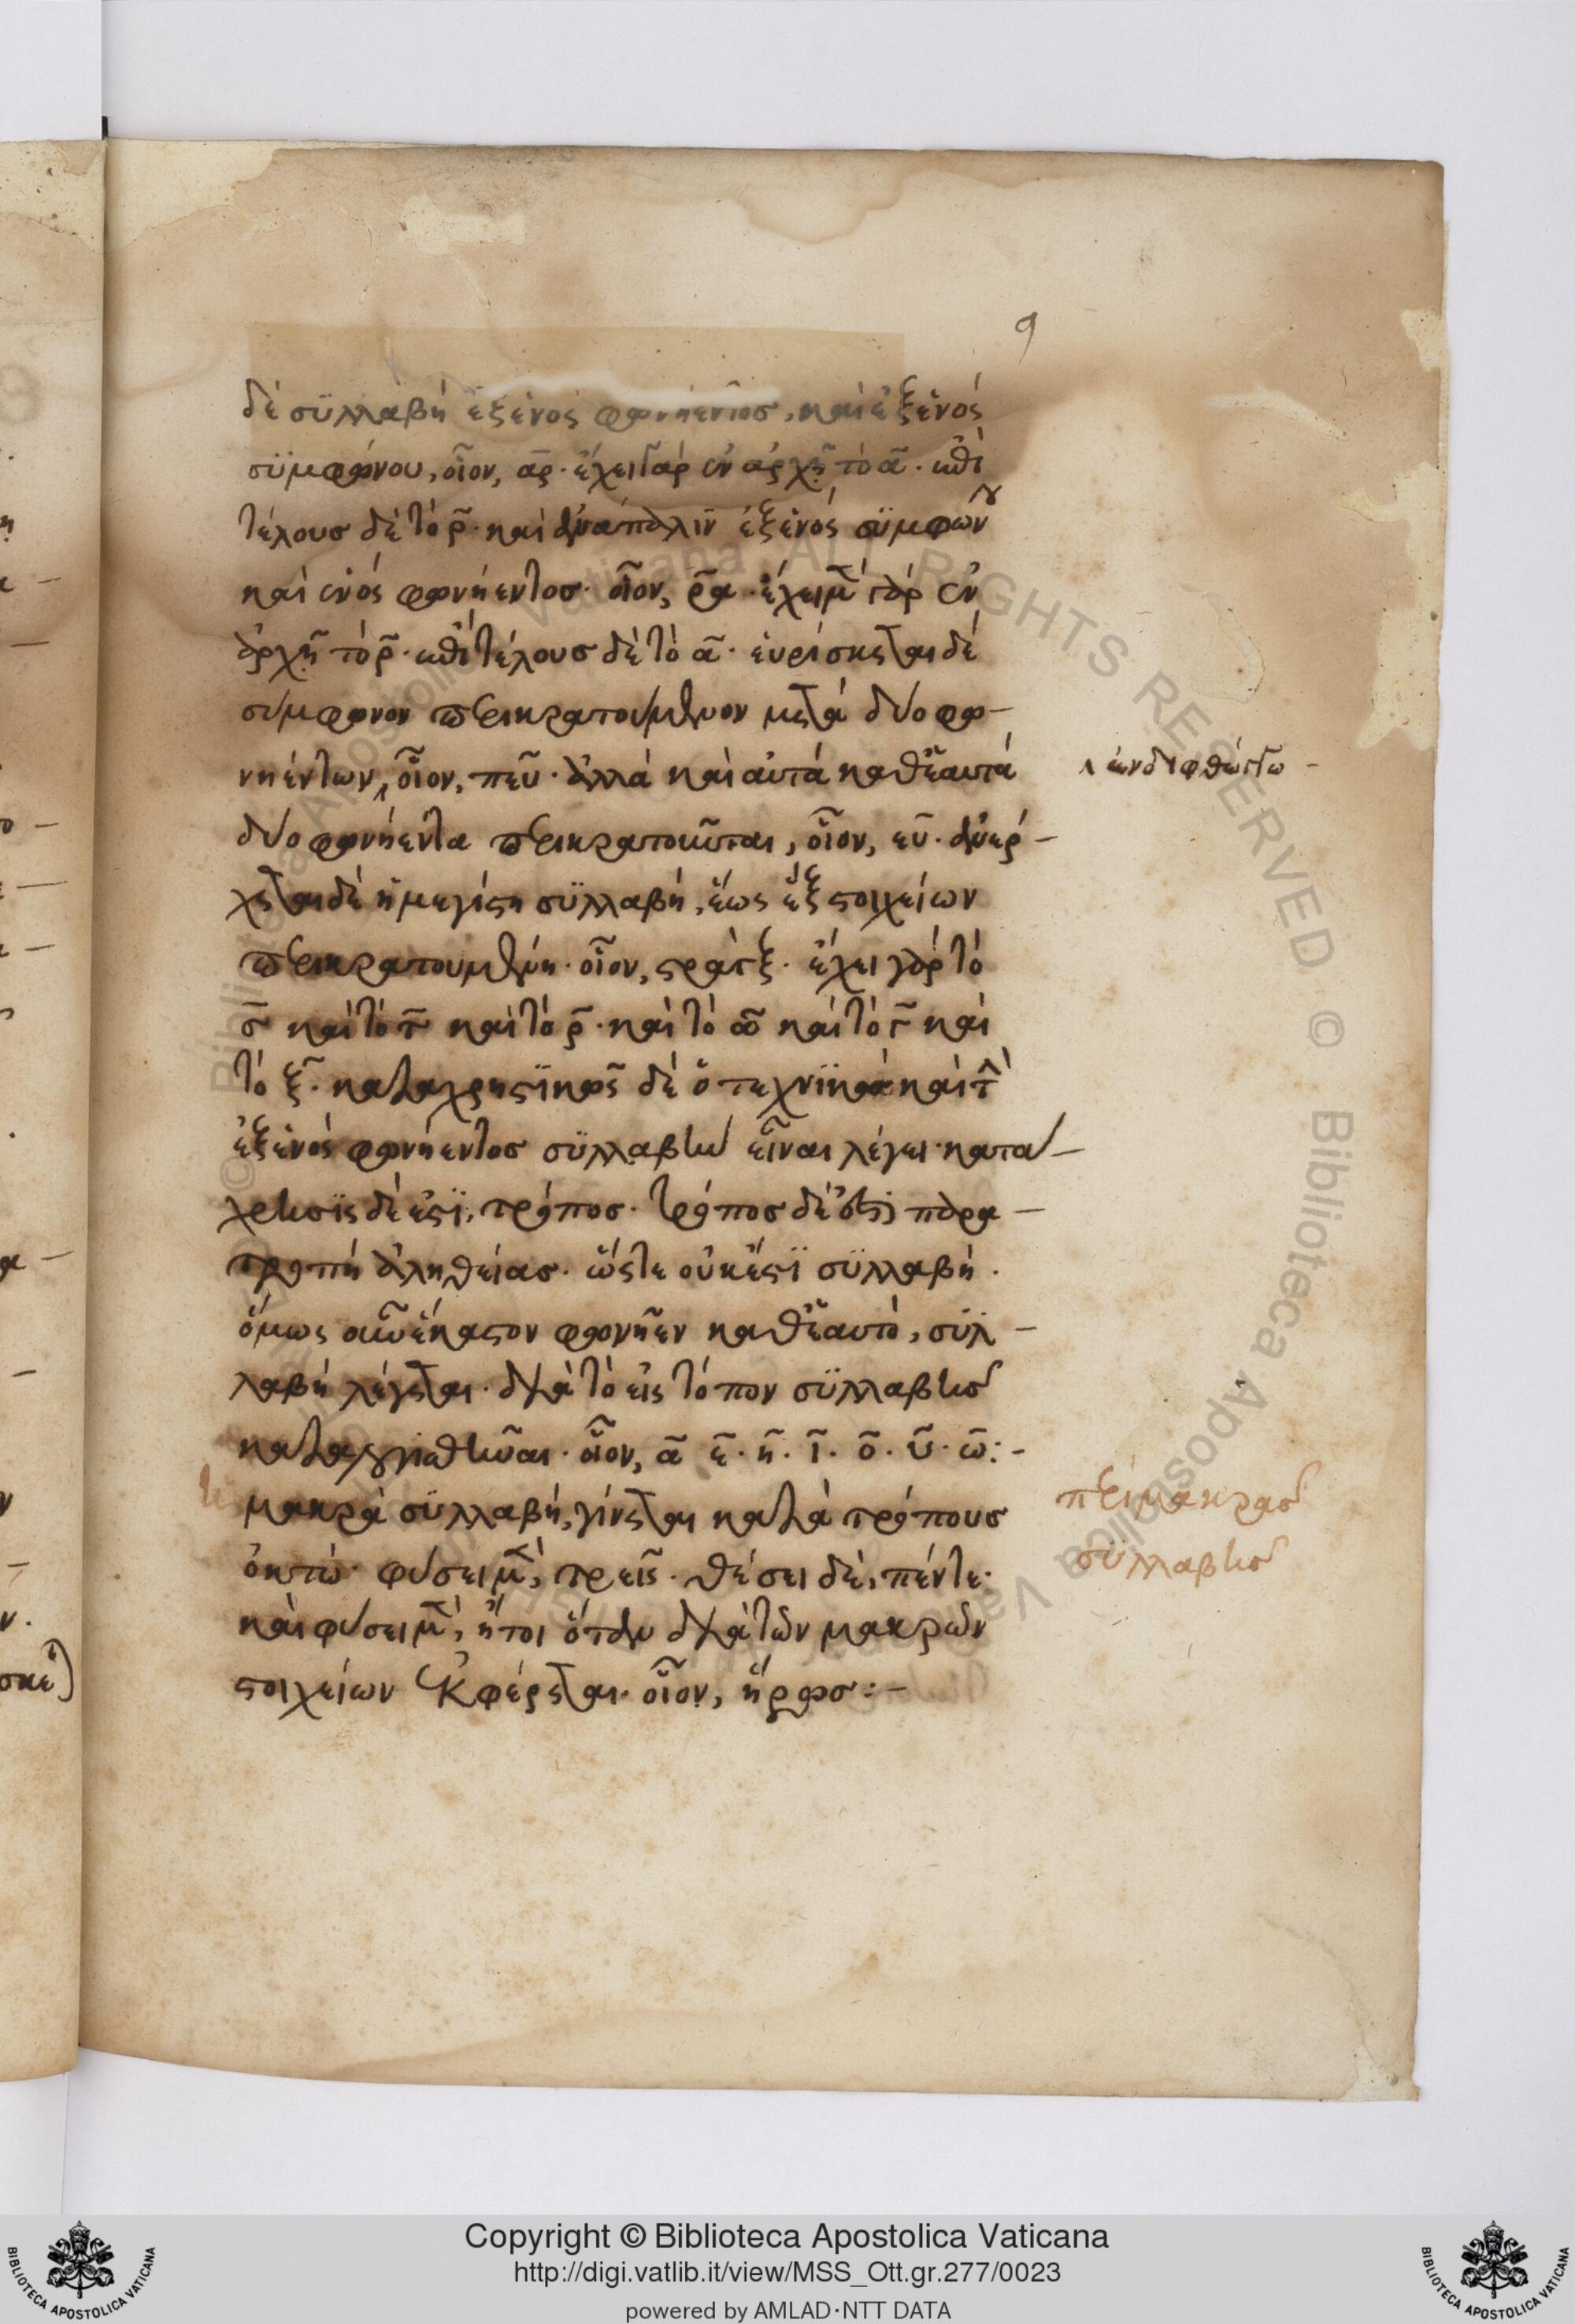 9
δὲ συλλαβὴ ἐξ ἑνὸς φωνήεντος, καὶ ἐξ ἑνὸς
συμφώνου, οἷον, ᾱρ. ἔχει γὰρ ἐν ἀρχῇ τὸ ᾱ. ἐπὶ
τέλους δὲ τὸ ρ̄. καὶ ἀνάπαλιν ἐξ ἑνὸς συμφώνου
καὶ ἑνὸς φωνήεντος. οἷον, ρ̄α. ἔχει μὲν γὰρ ἐν
ἀρχῇ τὸ ρ̄. ἐπὶ τέλους δὲ τὸ ᾱ. εὑρίσκεται δὲ
σύμφωνον περικρατούμενον μετὰ δύο φω-
νηέντων, οἷον, πεῦ. ἀλλὰ καὶ αὐτὰ καθ' ἑαυτὰ
ἐν διφθόγγω -
δύο φωνήεντα περικρατοῦνται, οἷον, εὖ. ἀνέρ-
χεται δὲ ἡ μεγίστη συλλαβὴ, ἕως ἓξ στοιχείων
περικρατουμένη. οἷον, στράγξ. ἔχει γὰρ τὸ
σ̄ καὶ τὸ τ̄ καὶ τὸ ρ̄. καὶ τὸ ᾱ καὶ τὸ γ̄ καὶ
τὸ ξ̄. καταχρηστικῶς δὲ ὁ τεχνικὸς καὶ τὴν
ἐξ ἑνὸς φωνήεντος συλλαβὴν εἶναι λέγει. κατά-
χρησις δέ ἐστι, τρόπος. τρόπος δέ ἐστι παρα-
τροπὴ ἀληθείας. ὥστε οὐκ ἔστι συλλαβή.
ὅμως οὖν ἕκαστον φωνῆεν καθ' ἑαυτὸ, συλ-
λαβὴ λέγεται. διὰ τὸ εἰς τόπον συλλαβῆς
οἷον, ᾱ ε̄. η̄. ῑ. ο̄. ῡ. ω̄:-
μακρὰ συλλαβὴ, γίνεται κατὰ τρόπους
περὶ μακρᾶς
συλλαβῆς
ὀκτώ. φύσει μὲν, τρεῖς. θέσει δὲ, πέντε.
καὶ φύσει μὲν, ἤτοι ὅταν διὰ τῶν μακρῶν
στοιχείων ἐκφέρεται. οἷον, ἥρως:-
Copyright © Biblioteca Apostolica Vaticana
http://digi.vatlib.it/view/MSS_Ott.gr.277/0023
powered by AMLAD·NTT DATA
BIBLIOTECA APOSTOLICA VATICANA
BIBLIOTECA APOSTOLICA VATICANA